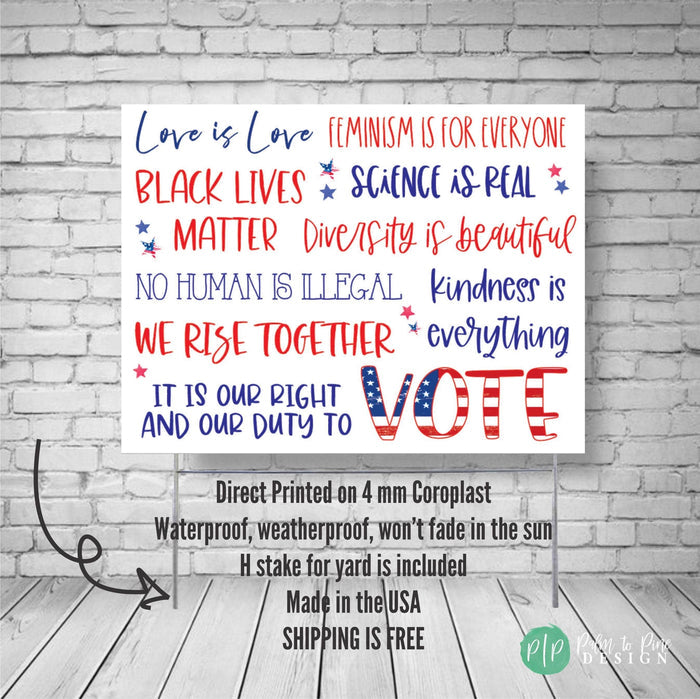 Love is Love FEMINISM IS FOR EVERYONE
BLACK LIVES SCIENCE IS REAL
MATTER Diversity is beautiful
NO HUMAN IS ILLEGAL kindness is
WE RISE TOGETHER everything
IT IS OUR RIGHT
AND OUR DUTY TO VOTE
Direct Printed on 4 mm Coroplast
Waterproof, weatherproof, won't fade in the sun
H stake for yard is included
Made in the USA
SHIPPING IS FREE
PLP Palm to Pine
DESIGN